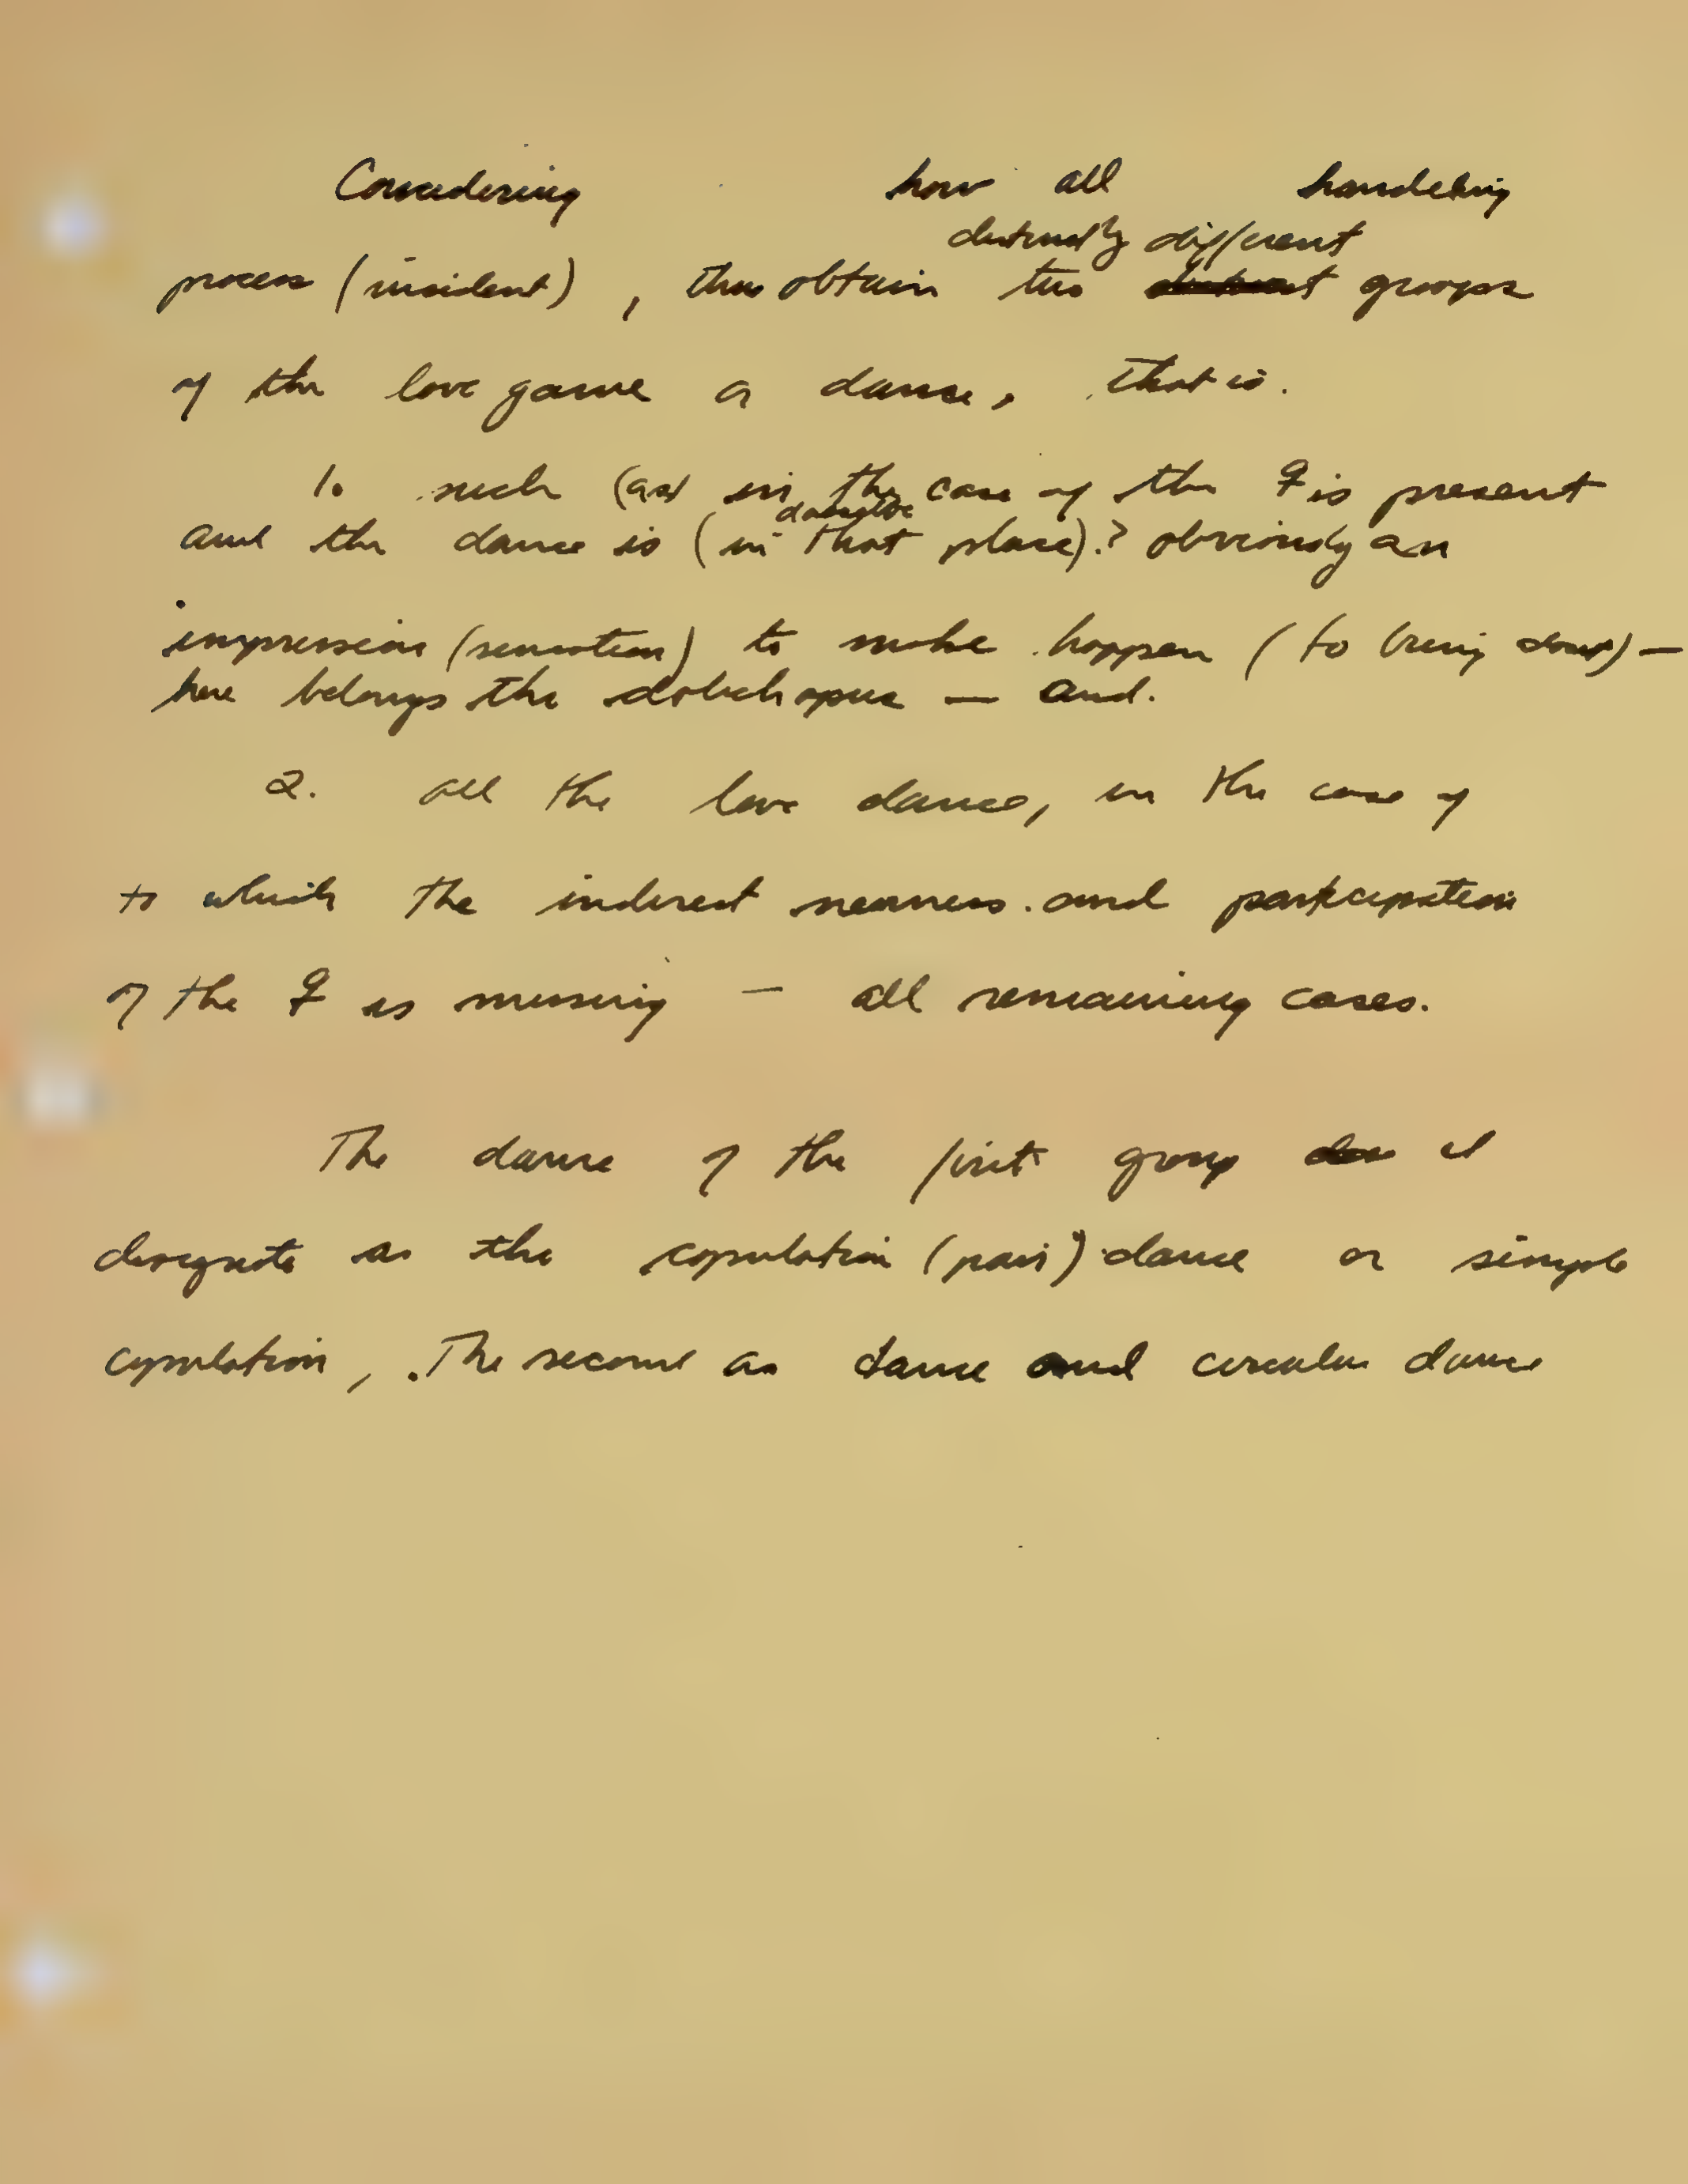 Considering how all handeling
distinctly different
process (incident), thus obtain two groups
of the love game or dance, that is.
1. such (as in the case of the ♀ is present
and the dance is (in that place).? obviously an
impression (sensation) to make happen (to bring about) —
here belongs the dolichopus — and.
2. all the love dance, in the case of
to which the inderect nearness and participation
of the ♀ is missing — all remaining cases.
The dance of the first group I
designate as the copulation (pair) dance or simple
copulation, The second as dance and circular dance